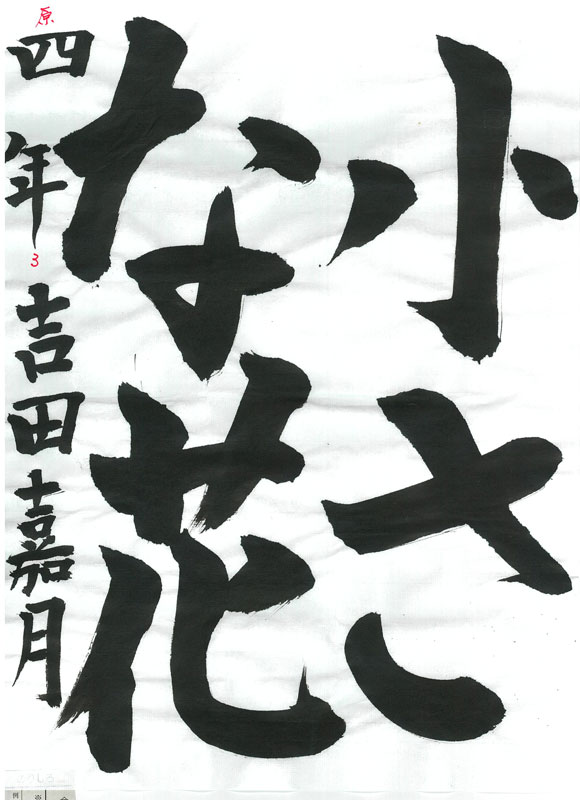 小さ
な花
四年 吉田嘉月
原
3